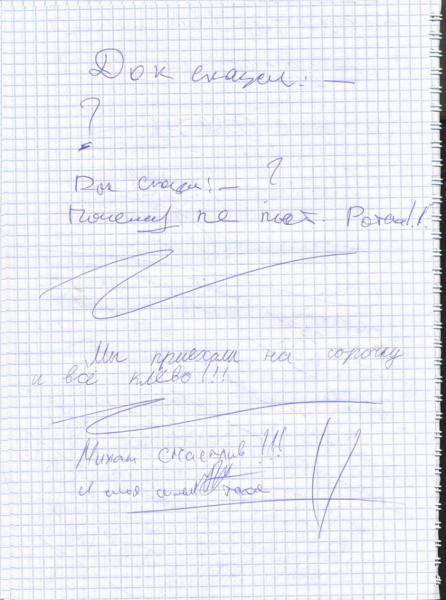 Док сказал: —
?
Док сказал: — ?
Почему не поёт. Ротал!!
Мы приехали на сорочку
и всё клёво!!!
Михаил счастлив!!!
И моя тоже